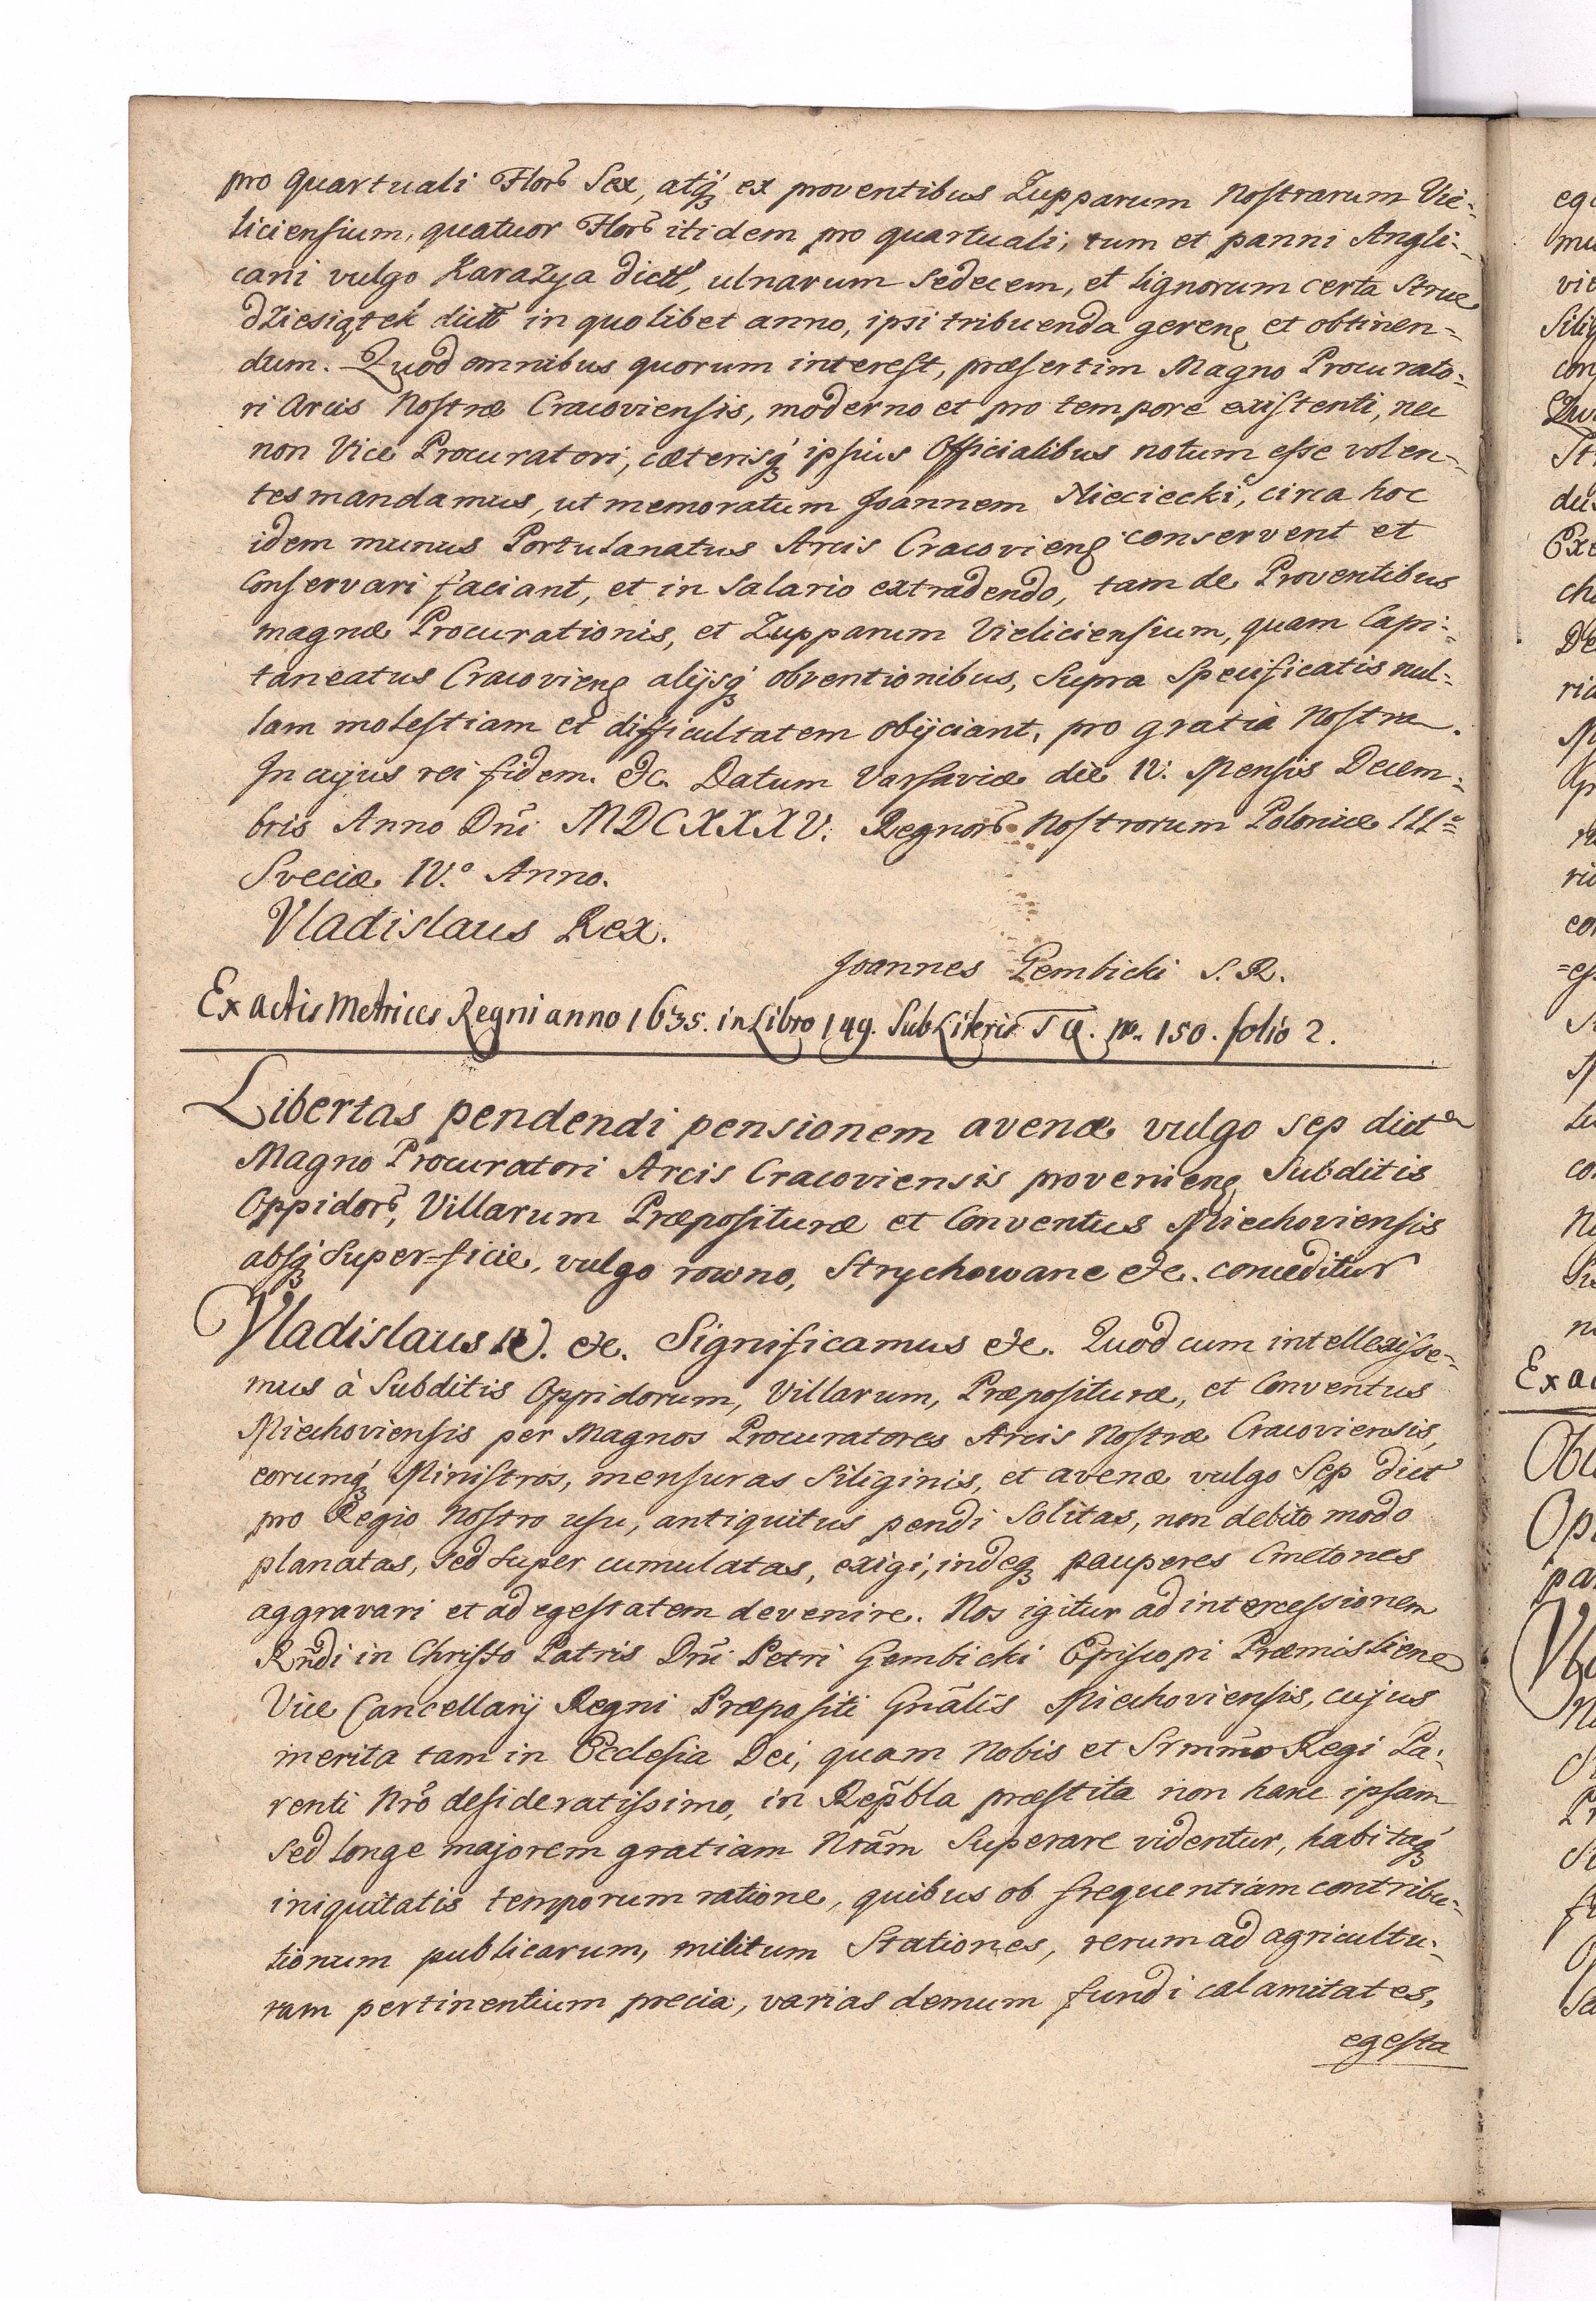 pro quartuali Flor̃ Sex, atq́ꝫ ex proventibus Zupparum Nostrarum Vie-
liciensium, quatuor Flor̃ itidem pro quartuali, tum et panni Angli-
cani vulgo Karazya dict̃, ulnarum Sedecem, et lignorum certa strue
dziesiątek dict̃ in quolibet anno, ipsi tribuenda gerenꝭ et obtinen-
dum. Quod omnibus quorum interest, præsertim Magno Procurato-
ri Arcis Nostræ Cracoviensis, moderno et pro tempore existenti, nec
non Vice Procuratori, cæterisq́ꝫ ipsius Officialibus notum esse volen-
tes mandamus, ut memoratum Joannem Mieciecki, circa hoc
idem munus Portulanatus Arcis Cracovienꝭ conservent et
Conservari faciant, et in Salario extradendo, tam de Proventibus
magnæ Procurationis, et Zupparum Vieliciensium, quam Capi-
taneatus Cracovienꝭ alijsq́ꝫ obventionibus, Supra Specificatis nul-
lam molestiam et difficultatem obijciant, pro gratia Nostra.
In cujus rei fidem. &c. Datum Varsaviæ die IV. Mensis Decem-
bris Anno Dñi MDCXXXV. Regnor̃ Nostrorum Poloniæ III°
Sveciæ IV.° Anno.
Vladislaus Rex.
Joannes Gembicki S. R.
Ex actis Metrices Regni anno 1635. in Libro 149. Sub Literis no. 150. folio 2.
Libertas pendendi pensionem avenæ vulgo sep dictæ
Magno Procuratori Arcis Cracoviensis provenienꝭ Subditis
Oppidor̃, Villarum Præpositurae et Conventus Miechoviensis
absq́ꝫ Super=ficie, vulgo rowno, Strychowane &c. conceditur
Vladislaus IV. &c. Significamus &c. Quod cum intellexisse-
mus à Subditis Oppidorum, Villarum, Præposituræ, et Conventus
Miechoviensis per Magnos Procuratores Arcis Nostræ Cracoviensis,
eorumq́ꝫ Ministros, mensuras Siliginis, et avenæ vulgo Sep dict̃
pro Regio Nostro usu, antiquitus pendi Solitas, non debito modo
planatas, sed super cumulatas, exigi, indeqꝫ pauperes Cmetones
aggravari et ad egestatem devenire. Nos igitur ad intercessionem
Rñdi in Christo Patris Dñi Petri Gembicki Episcopi Præmisliens
Vice Cancellarij Regni Præpositi Gñalis Miechoviensis, cujus
merita tam in Ecclesia Dei, quam Nobis et Srmmo Regi Pa-
renti Nrõ desideratissimo, in Repbla præstita non hanc ipsam
sed longe majorem gratiam Nrãm Superare videntur, habitaq́ꝫ
iniquitatis temporum ratione, quibus ob frequentiam contribu-
tionum publicarum, militum Stationes, rerum ad agricultu-
ram pertinentium precia, varias demum fundi calamitates,
egesta